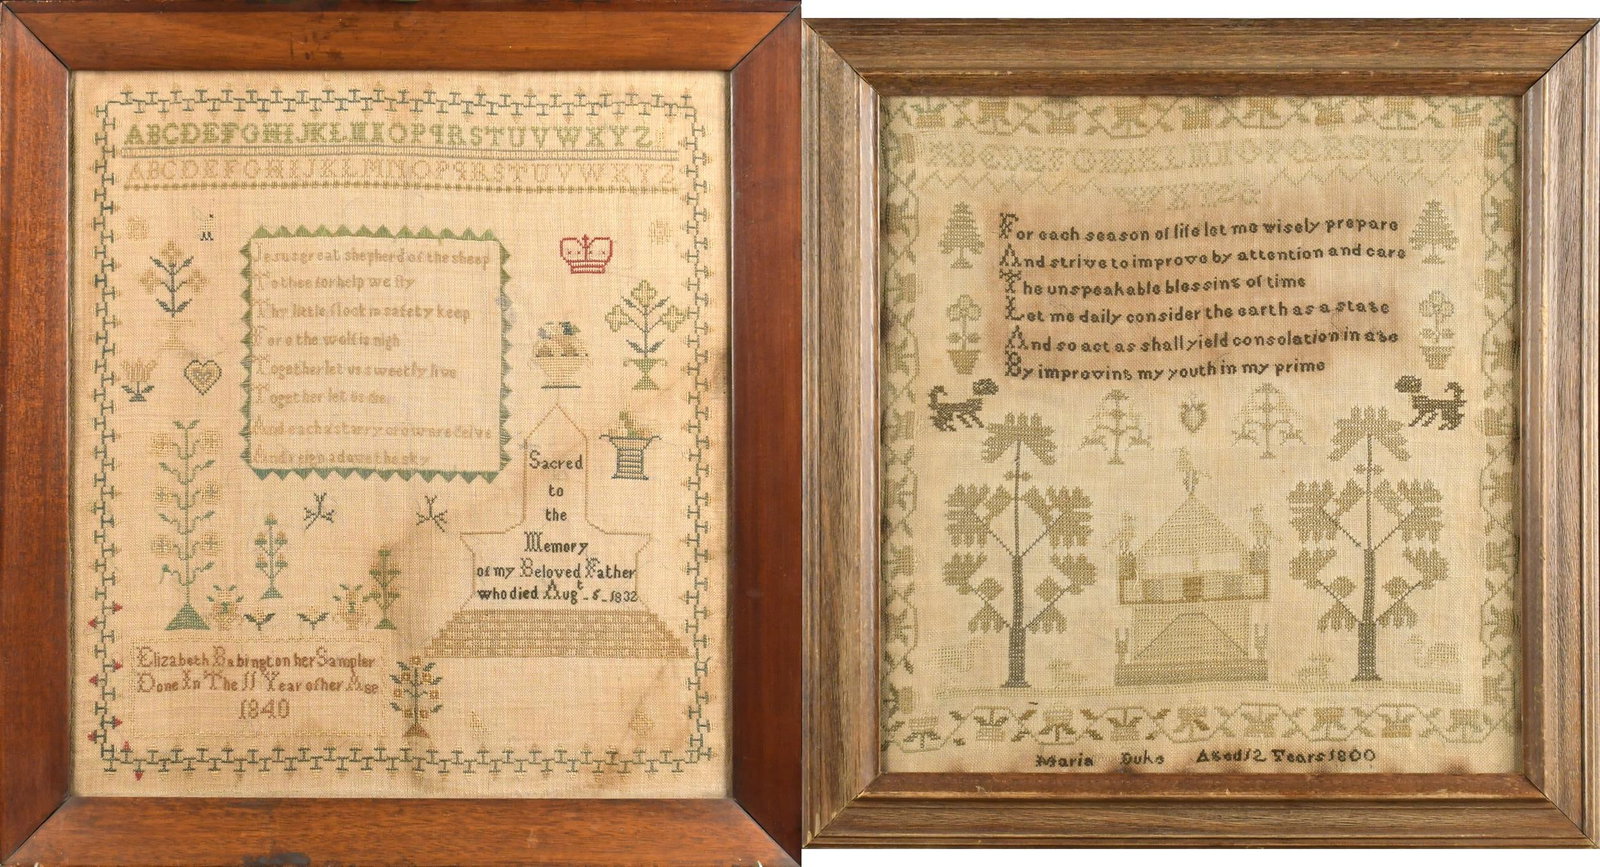 ABCDEFGHIJKLMNOPQRSTUVWXYZ
ABCDEFGHIJKLMNOPQRSTUVWXYZ
Jesus great shepherd of the sheep
To thee for help we fly
Thy little flock in safety keep
For e the wolf is nigh
Together let us sweetly live
Together let us die
And each a starry crown re ceive
And reign a dove the sky
Sacred
to
the
Memory
of my Beloved Father
who died Augt 5 1832
Elizabeth Babington her Sampler
Done In The 11 Year of her Age
1840
For each season of life let me wisely prepare
And strive to improve by attention and care
The unspeakable blessing of time
Let me daily consider the earth as a stage
And so act as shall yield consolation in age
By improving my youth in my prime
Maria Duke Aged 12 Years 1800